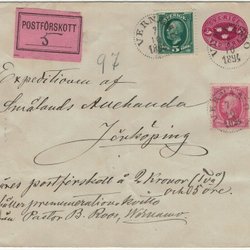 POSTFÖRSKOTT
5
97
SVERIGE
5 ÖRE
1894
Expeditionen af
Smålands Allehanda
Jönköping
postförskott å 2 Kronor (Två)
och 05 öre.
prenumerationskvitto
Pastor B. Roos, Wernamo